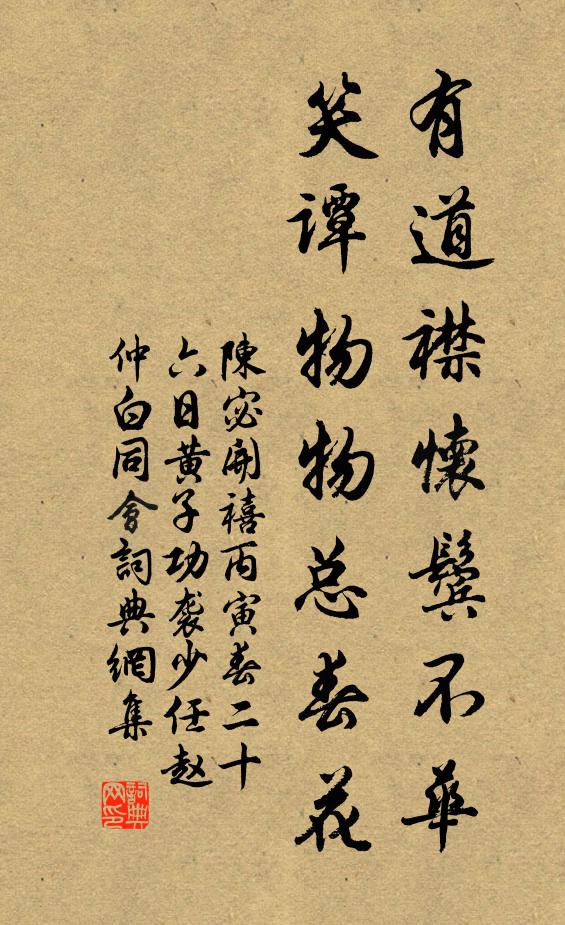 有道襟懷鬢不華
笑譚物物总春花
陳宓開禧丙寅春二十
六日黄子功袭少任赵
仲白同會詞典網集
詞典网印